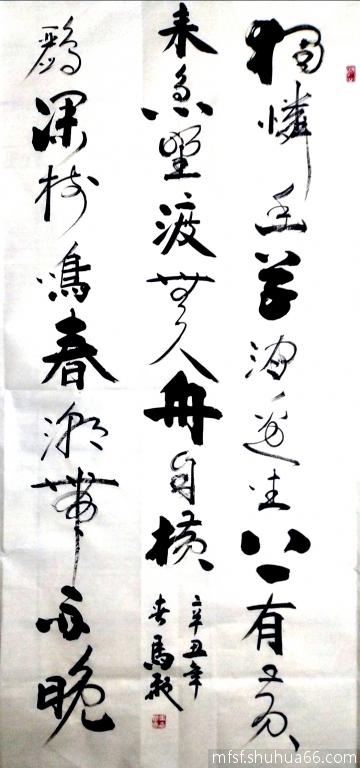 獨憐幽草澗邊生上有黄
鸝深樹鳴春潮帶雨晚
来急野渡無人舟自横
辛丑年
春馬
mfsf.shuhua66.com